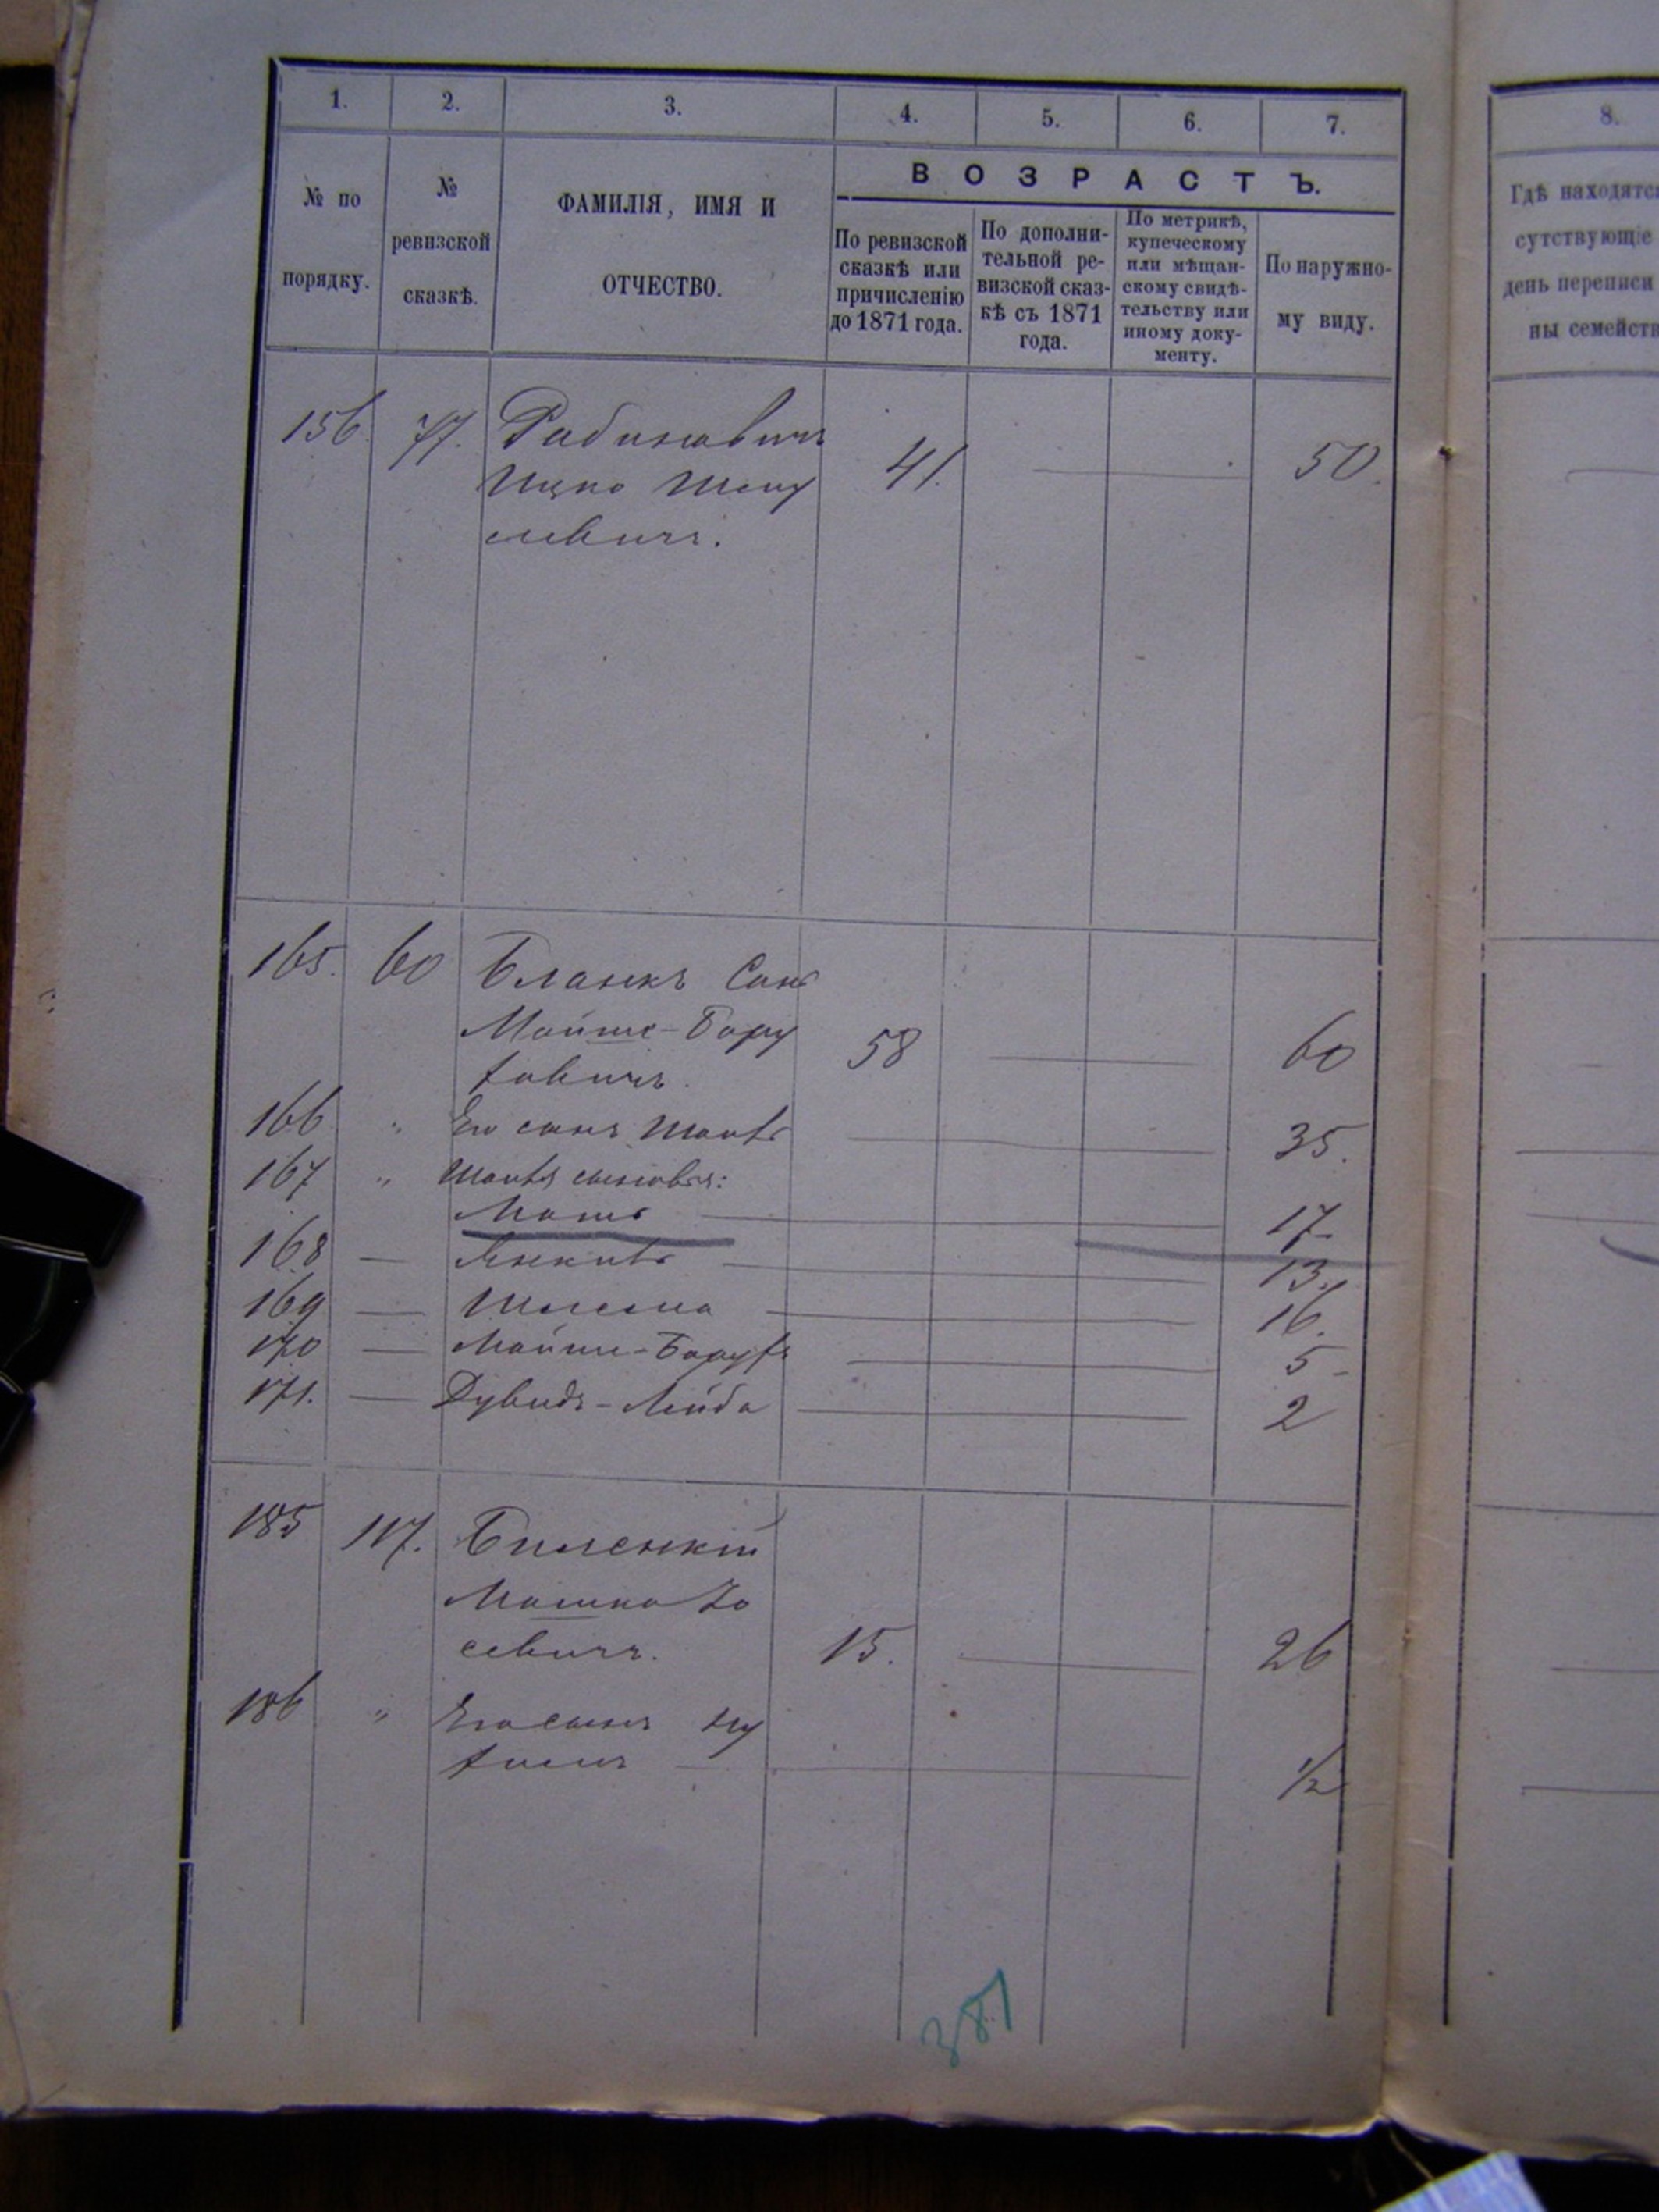 1. 2. 3. 4. 5. 6. 7.
ВОЗРАСТЪ.
№ по порядку.
№ ревизской сказкѣ.
ФАМИЛІЯ, ИМЯ И ОТЧЕСТВО.
По ревизской сказкѣ или причисленію до 1871 года.
По дополни-тельной ре-визской сказ-кѣ съ 1871 года.
По метрикѣ, купеческому или мѣщан-скому свидѣ-тельству или иному доку-менту.
По наружно-му виду.
156. 77. Рабиновичъ
Ицко Шму 41. 50.
левичъ.
165. 60 Бланкъ
Мойше-Бору 58 60
ховичъ.
166 " Его сынъ 35.
167 " сыновья:
17
168 — Янкивъ 13.
169 — Шлема 16.
170 — Мойше-Борухъ 5
171. — Дувидъ-Лейба 2
185 117. Биленкій
Мошко Іо
севичъ. 15. 26
186 " Его сынъ Ну
химъ 1/2
387
8.
Гдѣ находятс
сутствующіе
день переписи
ны семейств